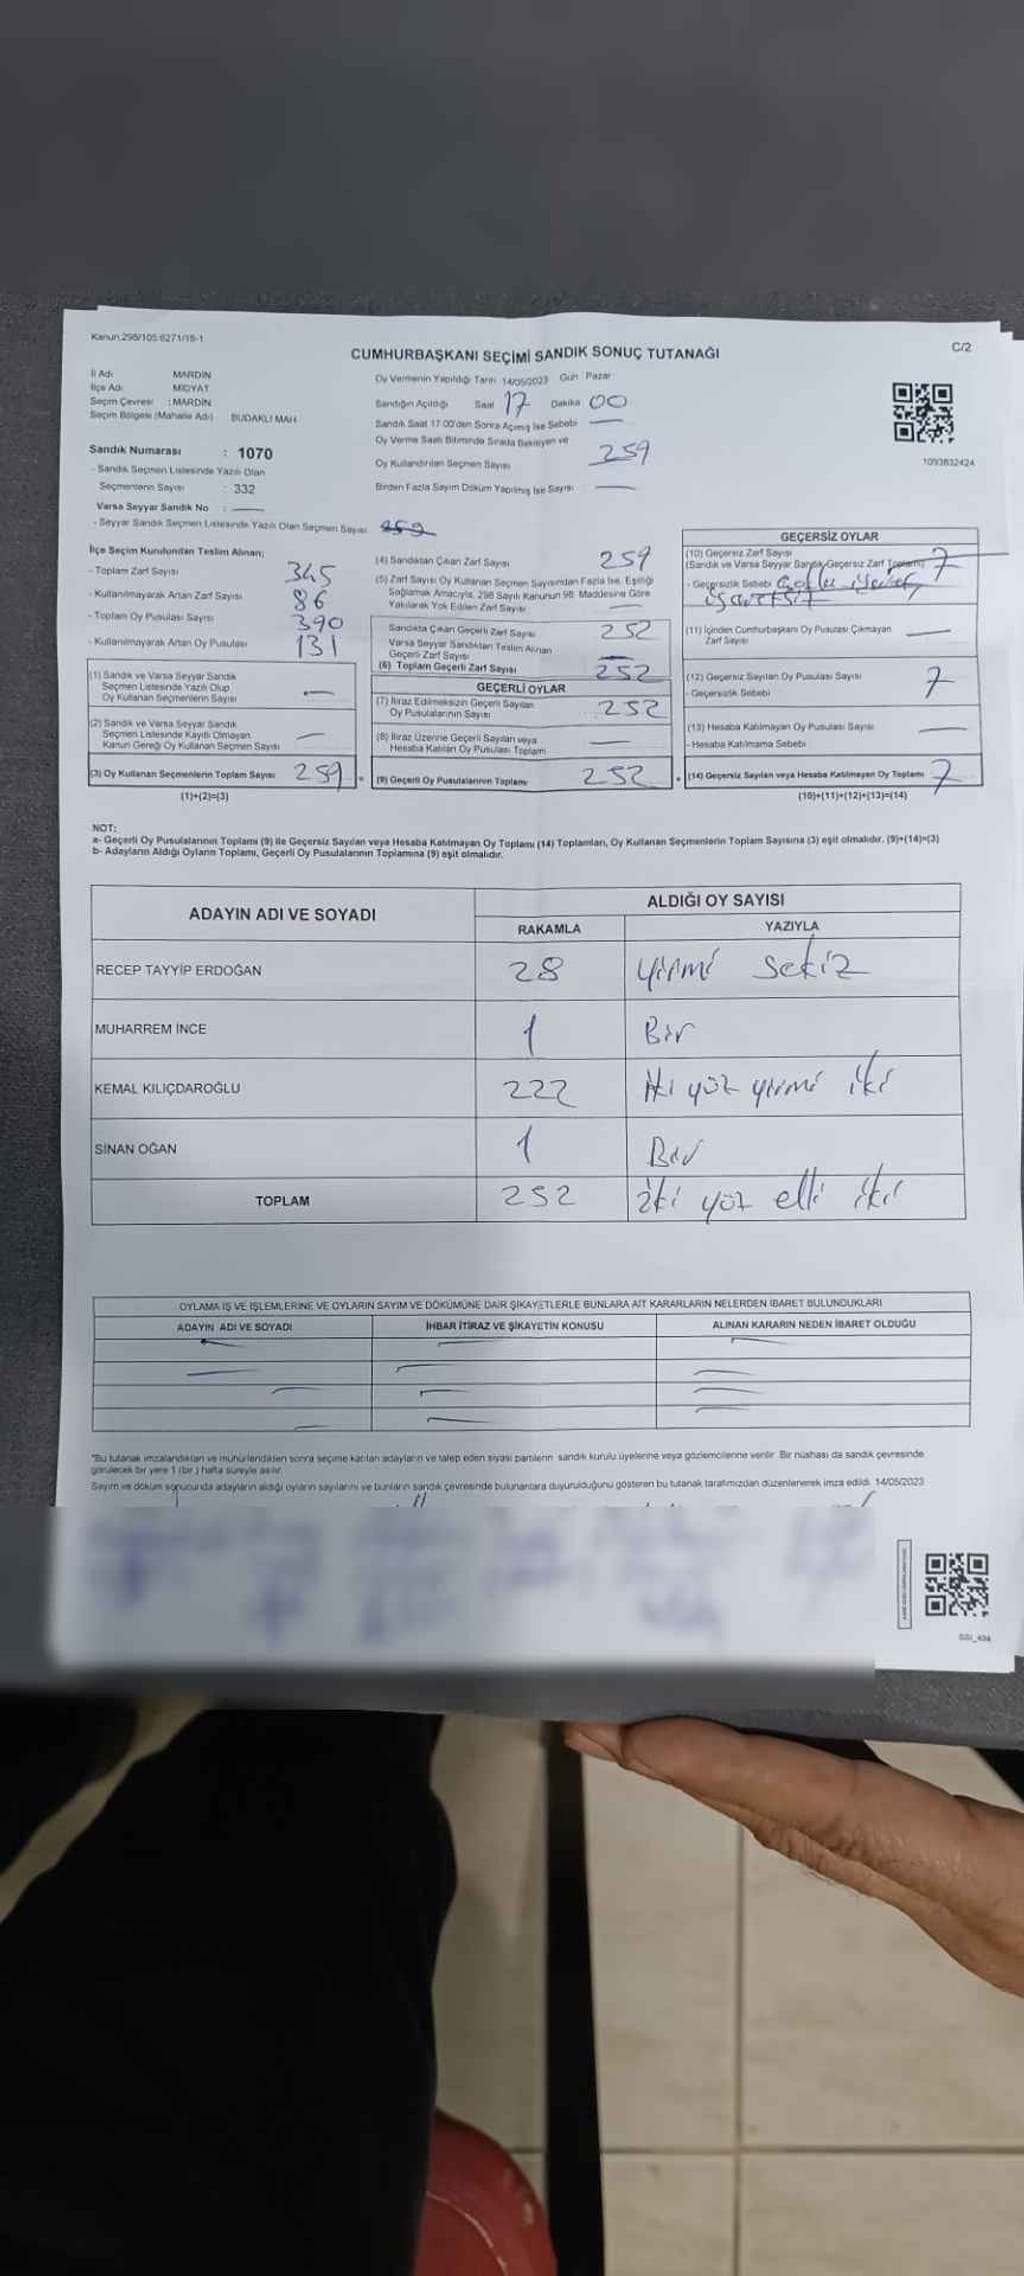 Kanun:298/105:6271/18-1
C/2
CUMHURBAŞKANI SEÇİMİ SANDIK SONUÇ TUTANAĞI
İl Adı MARDİN
İlçe Adı MİDYAT
Seçim Çevresi : MARDİN
Seçim Bölgesi (Mahalle Adı) BUDAKLI MAH
Sandık Numarası : 1070
- Sandık Seçmen Listesinde Yazılı Olan
Seçmenlerin Sayısı : 332
Varsa Seyyar Sandık No : —
- Seyyar Sandık Seçmen Listesinde Yazılı Olan Seçmen Sayısı 259
Oy Vermenin Yapıldığı Tarih 14/05/2023 Gün Pazar
Sandığın Açıldığı Saat 17 Dakika 00
Sandık Saat 17:00'den Sonra Açılmış İse Sebebi —
Oy Verme Saati Bitiminde Sırada Bekleyen ve
Oy Kullandırılan Seçmen Sayısı 259
Birden Fazla Sayım Döküm Yapılmış İse Sayısı —
1093832424
İlçe Seçim Kurulundan Teslim Alınan;
- Toplam Zarf Sayısı 345
- Kullanılmayarak Artan Zarf Sayısı 86
- Toplam Oy Pusulası Sayısı 390
- Kullanılmayarak Artan Oy Pusulası 131
(1) Sandık ve Varsa Seyyar Sandık
Seçmen Listesinde Yazılı Olup
Oy Kullanan Seçmenlerin Sayısı —
(2) Sandık ve Varsa Seyyar Sandık
Seçmen Listesinde Kayıtlı Olmayan
Kanun Gereği Oy Kullanan Seçmen Sayısı —
(3) Oy Kullanan Seçmenlerin Toplam Sayısı 259
(1)+(2)=(3)
(4) Sandıktan Çıkan Zarf Sayısı 259
(5) Zarf Sayısı Oy Kullanan Seçmen Sayısından Fazla İse, Eşitliği
Sağlamak Amacıyla, 298 Sayılı Kanunun 98. Maddesine Göre
Yakılarak Yok Edilen Zarf Sayısı —
Sandıkta Çıkan Geçerli Zarf Sayısı 252
Varsa Seyyar Sandıktan Teslim Alınan
Geçerli Zarf Sayısı —
(6) Toplam Geçerli Zarf Sayısı 252
GEÇERLİ OYLAR
(7) İtiraz Edilmeksizin Geçerli Sayılan
Oy Pusulalarının Sayısı 252
(8) İtiraz Üzerine Geçerli Sayılan veya
Hesaba Katılan Oy Pusulası Toplamı —
(9) Geçerli Oy Pusulalarının Toplamı 252
GEÇERSİZ OYLAR
(10) Geçersiz Zarf Sayısı
(Sandık ve Varsa Seyyar Sandık Geçersiz Zarf Toplamı) 7
- Geçersizlik Sebebi
(11) İçinden Cumhurbaşkanı Oy Pusulası Çıkmayan
Zarf Sayısı —
(12) Geçersiz Sayılan Oy Pusulası Sayısı 7
- Geçersizlik Sebebi
(13) Hesaba Katılmayan Oy Pusulası Sayısı —
- Hesaba Katılmama Sebebi
(14) Geçersiz Sayılan veya Hesaba Katılmayan Oy Toplamı 7
(10)+(11)+(12)+(13)=(14)
NOT:
a- Geçerli Oy Pusulalarının Toplamı (9) ile Geçersiz Sayılan veya Hesaba Katılmayan Oy Toplamı (14) Toplamları, Oy Kullanan Seçmenlerin Toplam Sayısına (3) eşit olmalıdır. (9)+(14)=(3)
b- Adayların Aldığı Oyların Toplamı, Geçerli Oy Pusulalarının Toplamına (9) eşit olmalıdır.
ADAYIN ADI VE SOYADI ALDIĞI OY SAYISI
RAKAMLA YAZIYLA
RECEP TAYYİP ERDOĞAN 28 yirmi sekiz
MUHARREM İNCE 1 Bir
KEMAL KILIÇDAROĞLU 222 iki yüz yirmi iki
SİNAN OĞAN 1 Bir
TOPLAM 252 iki yüz elli iki
OYLAMA İŞ VE İŞLEMLERİNE VE OYLARIN SAYIM VE DÖKÜMÜNE DAİR ŞİKAYETLERLE BUNLARA AİT KARARLARIN NELERDEN İBARET BULUNDUKLARI
ADAYIN ADI VE SOYADI İHBAR İTİRAZ VE ŞİKAYETİN KONUSU ALINAN KARARIN NEDEN İBARET OLDUĞU
"Bu tutanak imzalandıktan ve mühürlendikten sonra seçime katılan adayların ve talep eden siyasi partilerin sandık kurulu üyelerine veya gözlemcilerine verilir. Bir nüshası da sandık çevresinde
görülecek bir yere 1 (bir) hafta süreyle asılır.
Sayım ve döküm sonucunda adayların aldığı oyların sayılarını ve bunların sandık çevresinde bulunanlara duyurulduğunu gösteren bu tutanak tarafımızdan düzenlenerek imza edildi. 14/05/2023